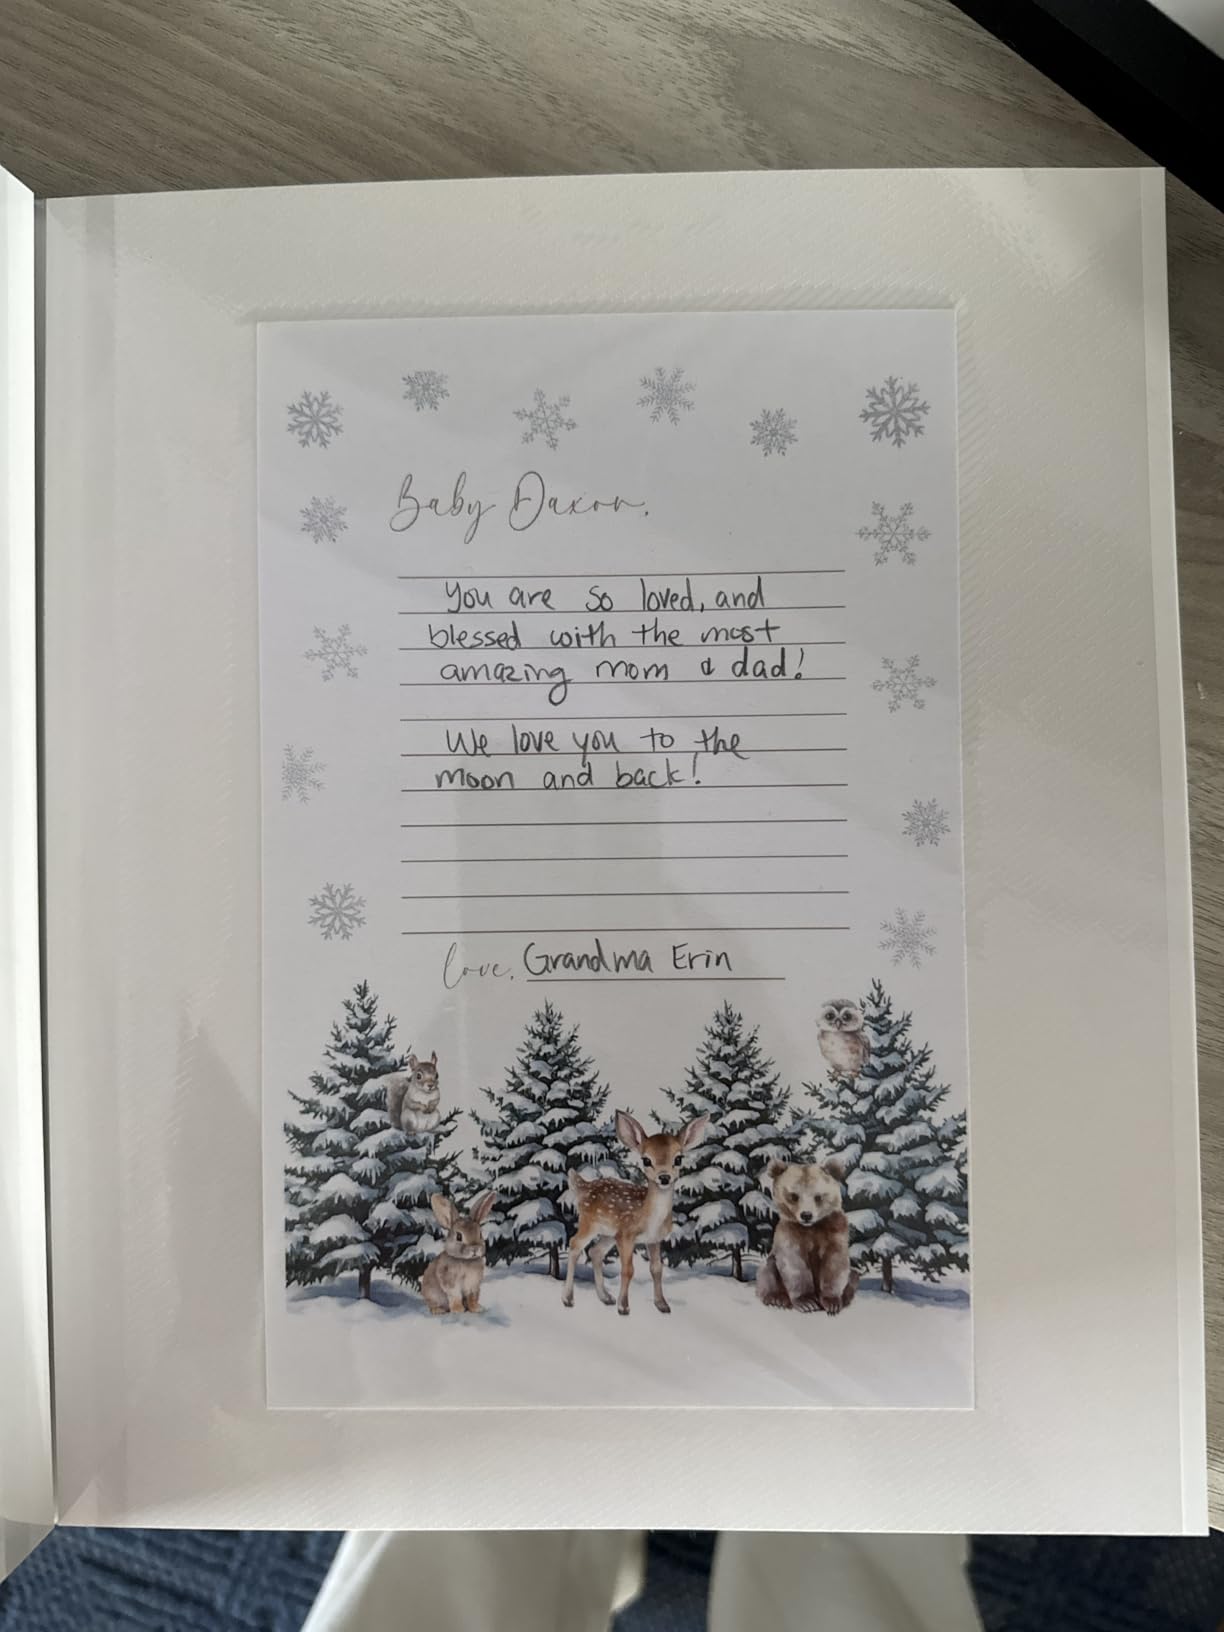 Baby Daxon,
You are so loved, and
blessed with the most
amazing mom & dad!
We love you to the
moon and back!
love, Grandma Erin